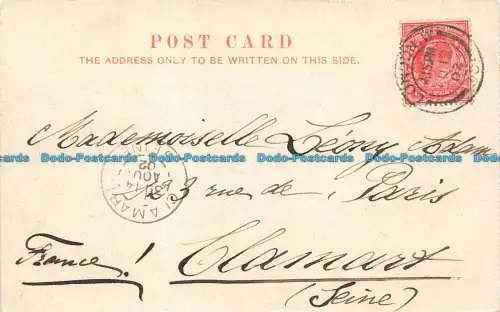 POST CARD
THE ADDRESS ONLY TO BE WRITTEN ON THIS SIDE.
Mademoiselle Léony Adam
3 rue de Paris
France! Clamart
(Seine)
CLAMART
AOU
02
LONDON
Dodo-Postcards Dodo-Postcards Dodo-Postcards Dodo-Postcards